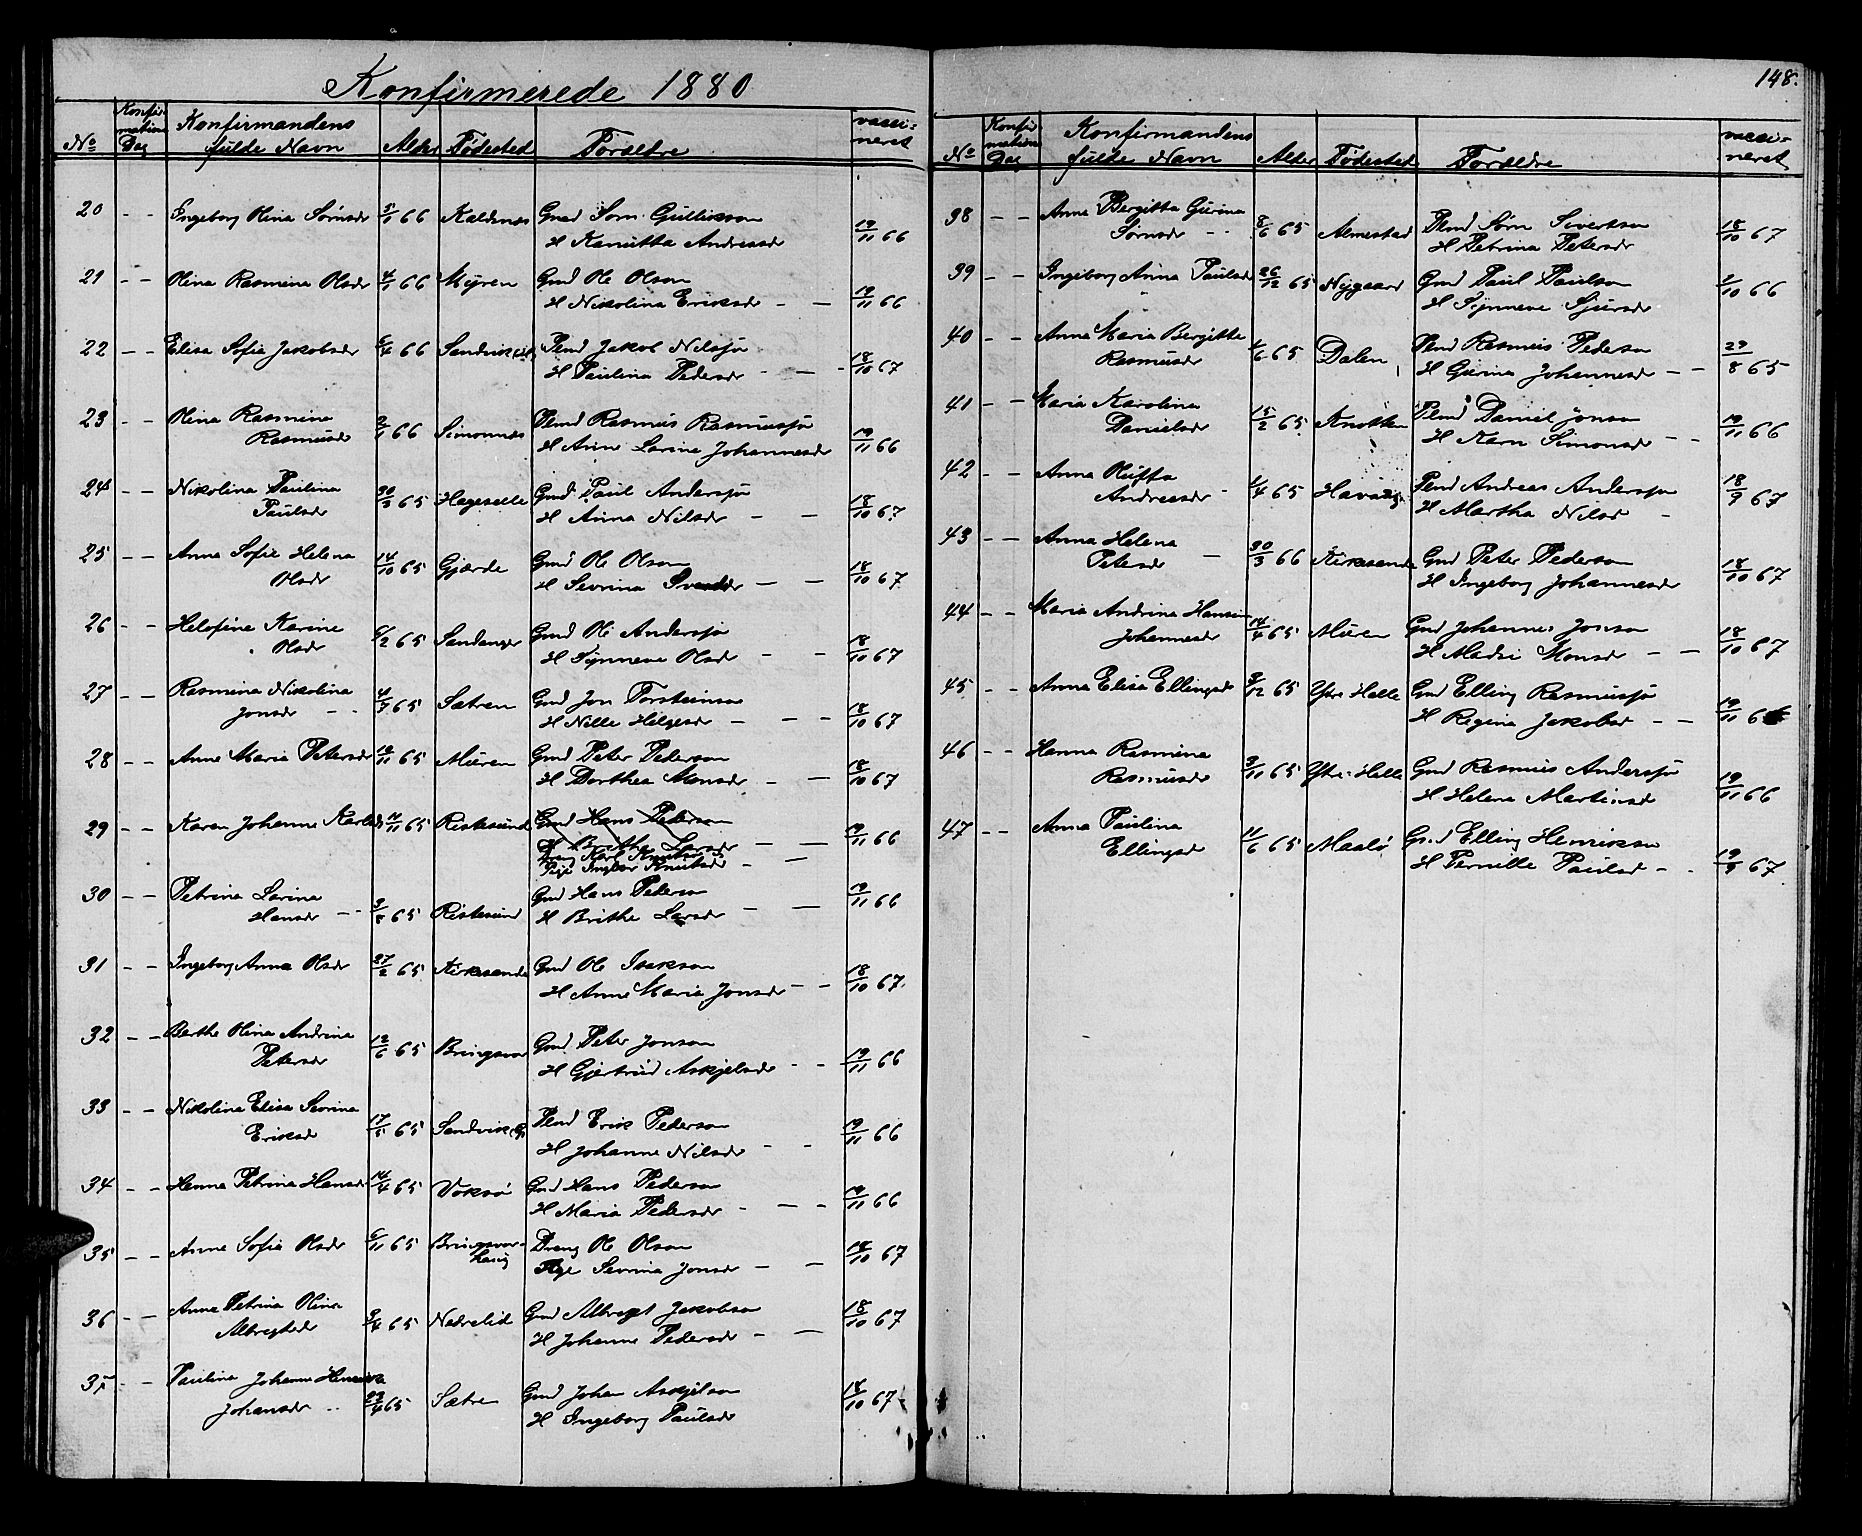 Konfirmerede 1880
No Konfirmations Dag Konfirmandens fulde Navn Alder Fødested Forældre vaccineret
20 - - Ingeborg Olina Sørnsdr 5/1 66 Kaldnæs Gmd Sørn Gulliksøn
H Kanutta Andreasdr 19/11 66
21 - - Olina Rasmina Olsdr 4/1 66 Myren Gmd Ole Olson
H Nikolina Eriksdr - - 19/11 66
22 - - Elisa Sofie Jakobsdr 6/4 66 Sandvik Plmd Jakob Nilssø
H Paulina Pedersdr - - - 18/10 67
23 - - Olina Rasmina
Rasmusdr 2/1 66 Simonnæs Plmd Rasmus Rasmussø
H Anne Larina Johannesdr 19/11 66
24 - - Nikolina Paulina
Paulsdr 30/3 65 Hageselle Gmd Paul Anderssø
H Anna Nilsdr - - 18/10 67
25 - - Anna Sofie Helena
Olsdr 14/10 65 Gjærde Gmd Ole Olson
H Sevrina - - 18/10 67
26 - - Helofine Karine
Olsdr 6/2 65 Sandanger Gmd Ole Anderssø
H Synneve Olsdr - - 18/10 67
27 - - Rasmina Nikolina
Jonsdr - - 4/7 65 Sætren Gmd Jon Torsteinson
H Nille Helgesdr - - - 18/10 67
28 - - Anne Maria Petersdr 10/11 65 Muren Gmd Peter Pederson
H Dorthea Monsdr - - 18/10 67
29 - - Karen Johanne Karlsdr 11/11 65 Ristesund Gmd Hans Pederson
H Brithe Larsdr - -
Dreng Karl Knutsen
Pige Ingbor Knutsdr - - 19/11 66
30 - - Petrina Larina
Hansdr - - 3/8 65 Ristesund Gmd Hans Pederson
H Brithe Larsdr - - 19/11 66
31 - - Ingeborg Anna Olsdr 27/2 65 Kirkesande Gmd Ole Isakson
H Anne Maria Jonsdr - - 18/10 67
32 - - Berthe Olina Andrina
Petersdr 12/6 65 Bringsvor Gmd Peter Jonson
H Gjertrud Askjelsdr - - 19/11 66
33 - - Nikolina Elisa Sevrina
Eriksdr 17/5 65 Sandvik Plmd Erik Pederson
H Johanne Nilsdr - - 19/11 66
34 - - Hanna Petrina Hansdr 14/4 65 Voksø Gmd Hans Pederson
H Maria Pedersdr - - - 19/11 66
35 - - Anne Sofie Olsdr 6/11 65 Bringsvorhaug Dreng Ole Olson
Pige Sevrina Jonsdr - - 18/10 67
36 - - Anna Petrina Olina
Albregtsdr 9/4 65 Nedrelid Gmd Albregt Jakobson
H Johanne Pedersdr - - 18/10 67
37 - - Paulina Johanne Henrikke
Johansdr - - 23/4 65 Sætre Gmd Johan Askjelson
H Ingeborg Paulsdr 18/10 67
148.
No Konfirmations Dag Konfirmandens fulde Navn Alder Fødested Forældre vaccineret
38 - - Anne Bergitta Gurina
Sørnsdr - - 8/6 65 Almestad Plmd Sørn Sivertson
H Petrina Petersdr 18/10 67
39 - - Ingeborg Anna Paulsdr 26/12 65 Nygaard Gmd Paul Paulson
H Synneve Sjursdr 2/10 66
40 - - Anne Maria Bergitte
Rasmusdr 1/6 65 Dalen Plmd Rasmus Pederson
H Gurina Johannesdr - - 29/8 65
41 - - Maria Karolina
Danielsdr 15/2 65 Knotten Plmd Daniel Jonson
H Karn Simonsdr - - 19/11 66
42 - - Anna
Andreasdr - 1/4 65 Plmd Andreas Anderssø
H Martha Nilsd - 18/9 67
43 - - Anna Helena
Petersdr - 30/3 66 Kirkesande Gmd Peter Pederson
H Ingeborg Johannesdr 18/10 67
44 - - Maria Andrina Hansine
Johannesdr 14/4 65 Muren Gmd Johannes Jonson
H Madsi Monsdr - - 18/10 67
45 - - Anna Elisa Ellingsdr 9/12 65 Ytre Helle Gmd Elling Rasmussø
H Regina Jakobsd - - 19/11 66
46 - - Hanna Rasmina
Rasmusdr 3/11 65 Ytre Helle Gmd Rasmus Anderssø
H Helena Martinsd 19/11 66
47 - - Anna Paulina
Ellingsd 11/6 65 Maalø Gmd Elling Henrikson
H Pernille Paulsd - - 19/9 67